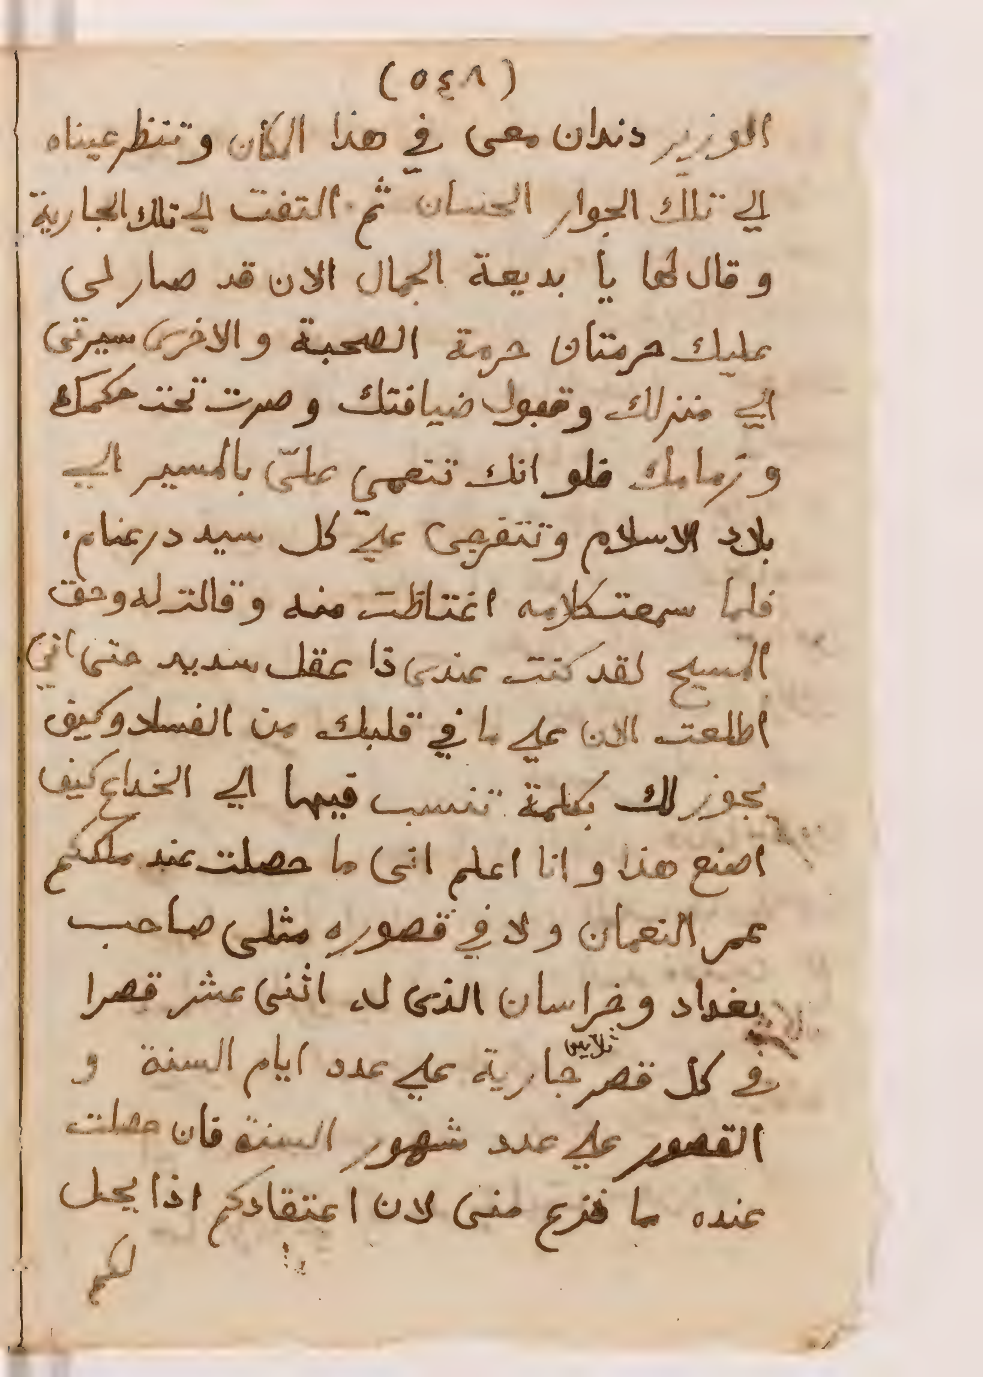 (٥٤٨)
الوزير دندان معى في هذا المكان وتنظر عيناه
الي تلك الجوار الحسان ثم التفت الي تلك الجارية
وقال لها يا بديعة الجمال الان قد صار لى
عليك حرمتان حرمة الصحبة والاخرى سيرتى
الي منزلك وقبول ضيافتك وصرت تحت حكمك
وزمامك فلو انك تنعمي علىّ بالمسير الي
بلاد الاسلام وتتفرجى علي كل سيد درعنام.
فلما سمعت كلامه اغتاظت منه وقالت له وحق
المسيح لقد كنت عندى ذا عقل سديد حتى انى
اطلعت الان علي ما في قلبك من الفساد وكيف
يجوز لك بكلمة تنسب فيها الي الخداع كيف
اصنع هذا وانا اعلم انى ما حصلت عند ملككم
عمر النعمان ولا في قصوره مثلى صاحب
بغداد وخراسان الذى له اثنى عشر قصرا
في كل قصر ثلاثين جارية علي عدد ايام السنة و
القصور علي عدد شهور السنة فان حصلت
عنده ما فزع منى لان اعتقادكم اذا يحل
لكم